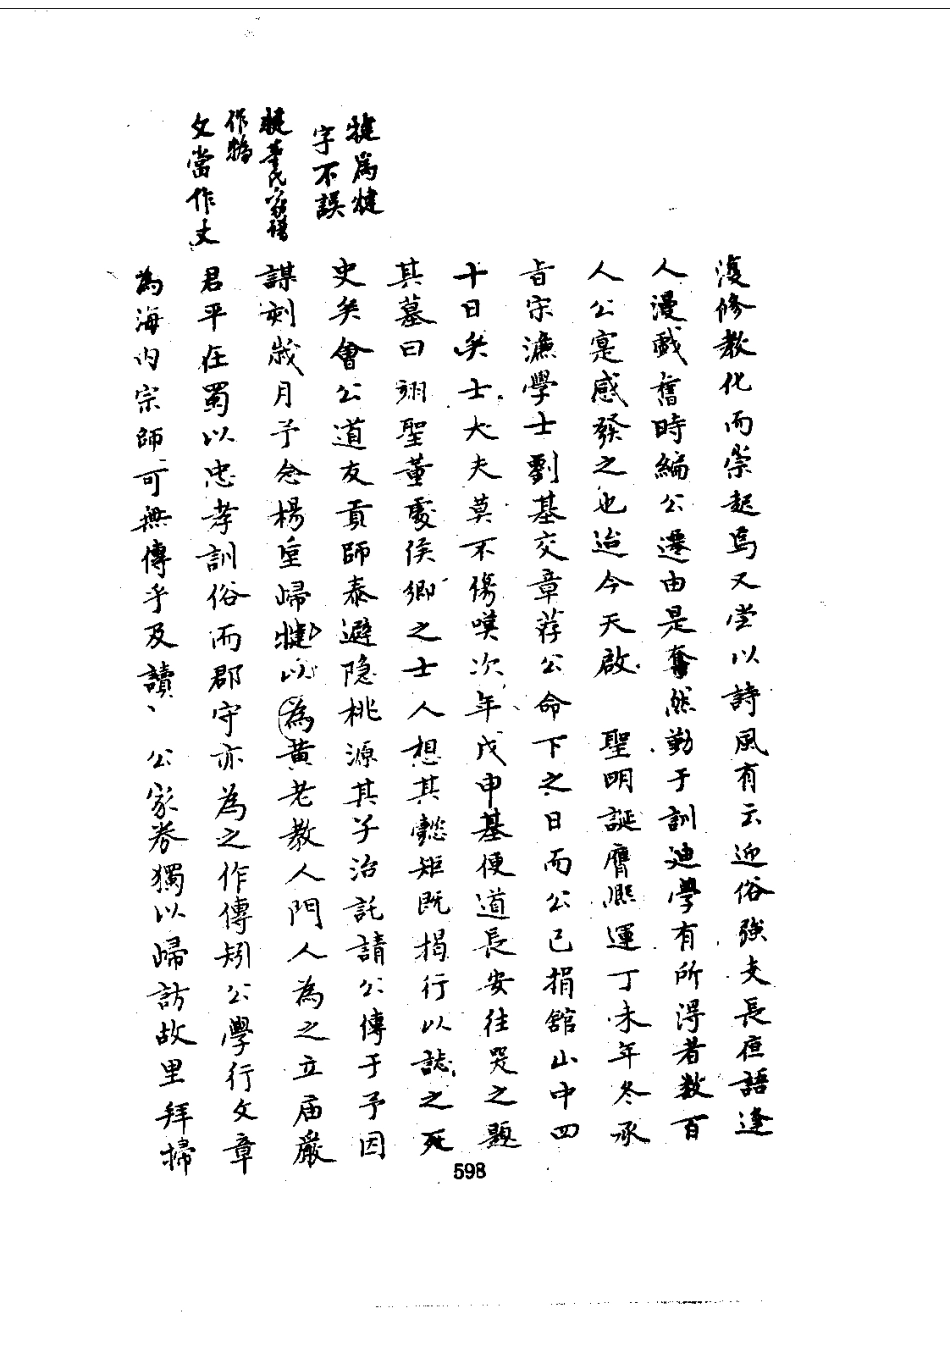 犍為犍
字不誤
犍華氏家譜
作犍
文當作丈
復修教化而崇起焉又嘗以詩風有云迎俗強支長夜語逢
人漫戲舊時編公遷由是奮然勤于訓迪學有所得者数百
人公寔感發之也迨今天啟 聖明誕膺熙運丁未年冬承
旨宋濂學士劉基交章荐公命下之日而公已捐舘山中四
十日矣士大夫莫不傷嘆次年戊申基便道長安往哭之題
其墓曰翊聖董處侯卿之士人想其懿矩既揭行以誌之死
史矣會公道友貢師泰避隐桃源其子治託請公傳于予因
謀刻歲月予念楊重歸犍以為黃老教人門人為之立届嚴
君平在蜀以忠孝訓俗而郡守亦為之作傳矧公學行文章
為海内宗師可無傳乎及讀 公家劵獨以歸訪故里拜掃
598